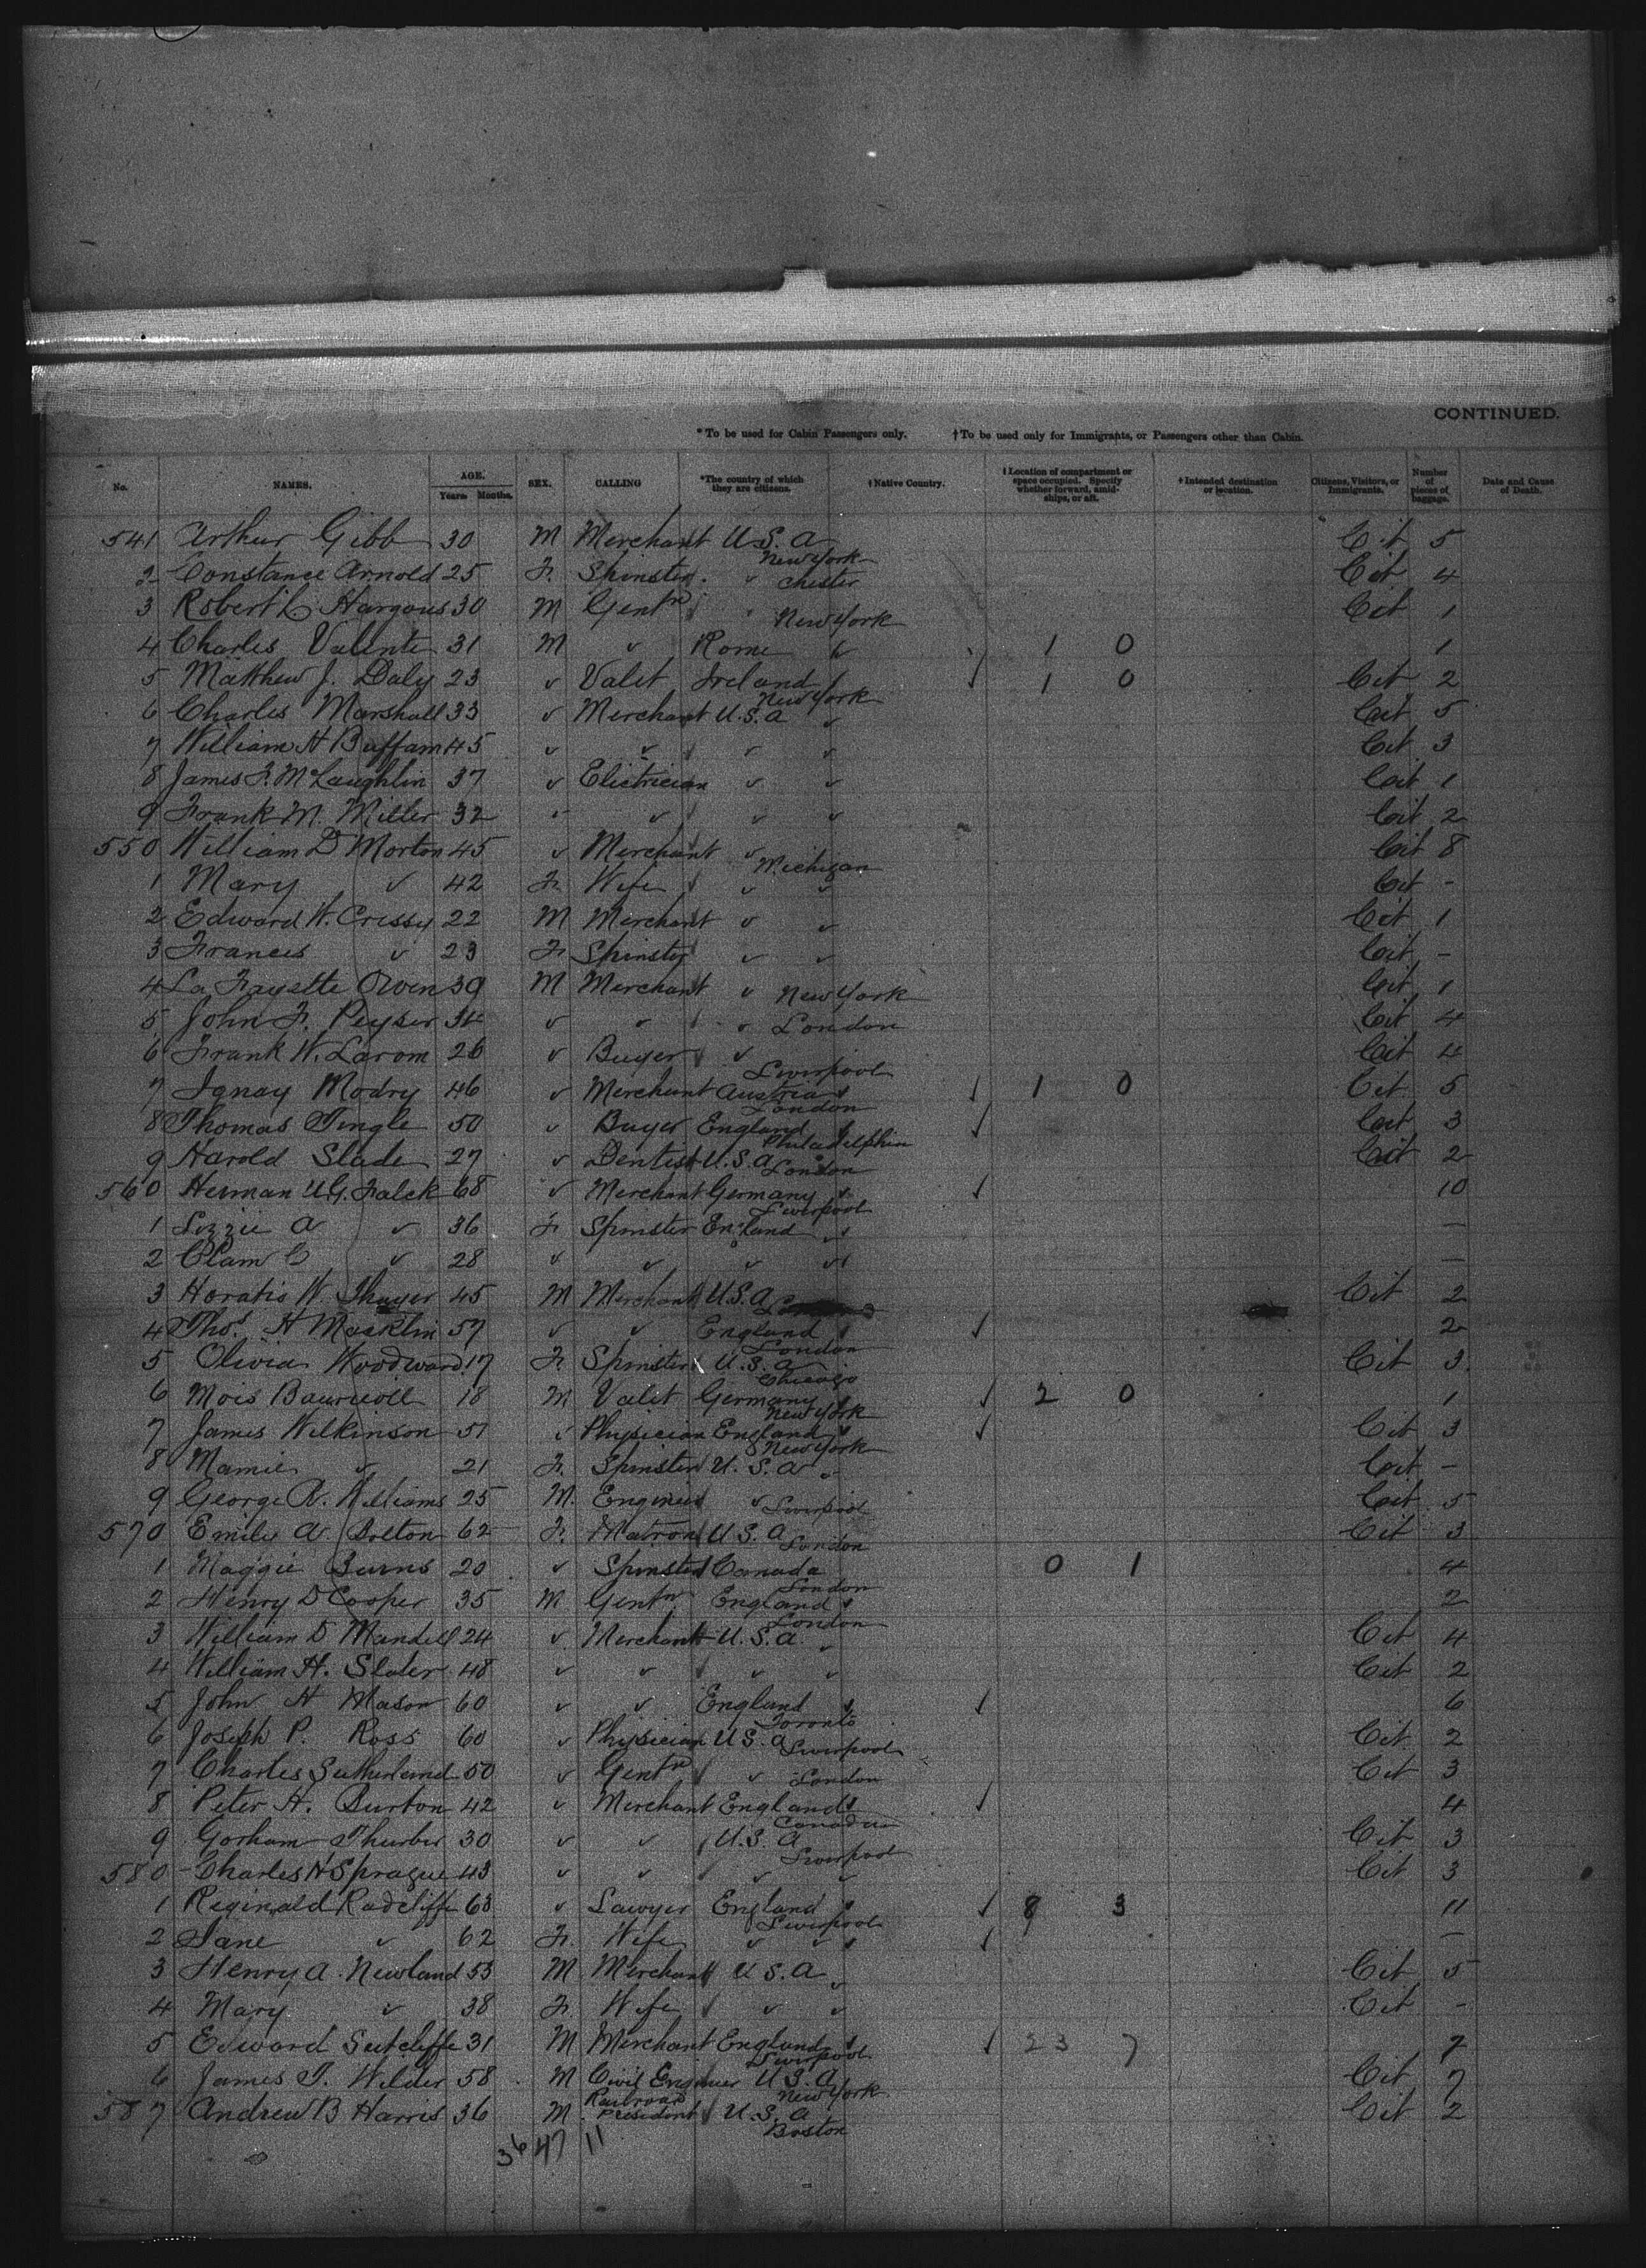 CONTINUED.
* To be used for Cabin Passengers only. † To be used only for Immigrants, or Passengers other than Cabin.
No. NAMES. AGE. Years Months. SEX. CALLING *The country of which they are citizens. † Native Country. † Location of compartment or space occupied. Specify whether forward, amidships, or aft. † Intended destination or location. Citizens, Visitors, or Immigrants. Number of pieces of baggage. Date and Cause of Death.
541 Arthur Gibb 30 M Merchant U.S.A New York Cit 5
2 Constance Arnold 25 F. Spinster " Chester Cit 4
3 Robert L Hargous 30 M Gentn " New York Cit 1
4 Charles Valente 31 M " Rome " 1 0 1
5 Matthew J. Daly 23 " Valet Ireland New York 1 0 Cit 2
6 Charles Marshall 33 " Merchant U.S.A " Cit 5
7 William H Buffam 45 " " " " Cit 3
8 James F. McLaughlin 37 " Electrician " " Cit 1
9 Frank M. Miller 32 " " " " Cit 2
550 William D Morton 45 " Merchant " Michigan Cit 8
1 Mary " 42 F. Wife " " Cit -
2 Edward W. Crissy 22 M Merchant " " Cit 1
3 Frances " 23 F. Spinster " " Cit -
4 La Fayette Owen 39 M Merchant " New York Cit 1
5 John F. Peyser 34 " " " London Cit 4
6 Frank W. Larom 26 " Buyer " Liverpool Cit 4
7 Ignay Modry 46 " Merchant Austria London 1 0 Cit 5
8 Thomas Tingle 50 " Buyer England Philadelphia Cit 3
9 Harold Slade 27 " Dentist U.S.A London Cit 2
560 Herman U.G. Falck 68 " Merchant Germany Liverpool 10
1 Lizzie A " 36 F. Spinster England " -
2 " 28 " " " " -
3 Horatio W. Thayer 45 M Merchant U.S.A Cit 2
4 Thos. H Macklin 57 " " England London 2
5 Olivia Woodward 17 F. Spinster U.S.A Chicago Cit 3
6 18 M Valet Germany New York 2 0 1
7 James Wilkinson 51 " Physician England New York Cit 3
8 Mamie " 21 F. Spinster U.S.A " Cit -
9 George R. Williams 25 M. Engineer " Liverpool Cit 5
570 Emily A Bolton 62 F. Matron U.S.A London Cit 3
1 Maggie Burns 20 " Spinster Canada London 0 1 4
2 Henry D Cooper 35 M Gentn England London 2
3 William D Mandell 24 " Merchant U.S.A " Cit 4
4 William H. Slater 48 " " " " Cit 2
5 John H Mason 60 " " England Toronto 6
6 Joseph P. Ross 60 " Physician U.S.A Liverpool Cit 2
7 Charles Sutherland 50 " Gentn " London Cit 3
8 Peter H. Burton 42 " Merchant England Canada 4
9 Gorham Thurber 30 " " U.S.A Liverpool Cit 3
580 Charles H Sprague 43 " " " " Cit 3
1 Reginald Radcliffe 63 " Lawyer England Liverpool 8 3 11
2 Jane " 62 F. Wife " " -
3 Henry A. Newland 53 M Merchant U.S.A " Cit 5
4 Mary " 38 F. Wife " " Cit -
5 Edward Sutcliffe 31 M Merchant England Liverpool 23 7 7
6 James T. Wilder 58 M Civil Engineer U.S.A New York Cit 7
587 Andrew B Harris 36 M. Railroad President U.S.A Boston Cit 2
36 47 11